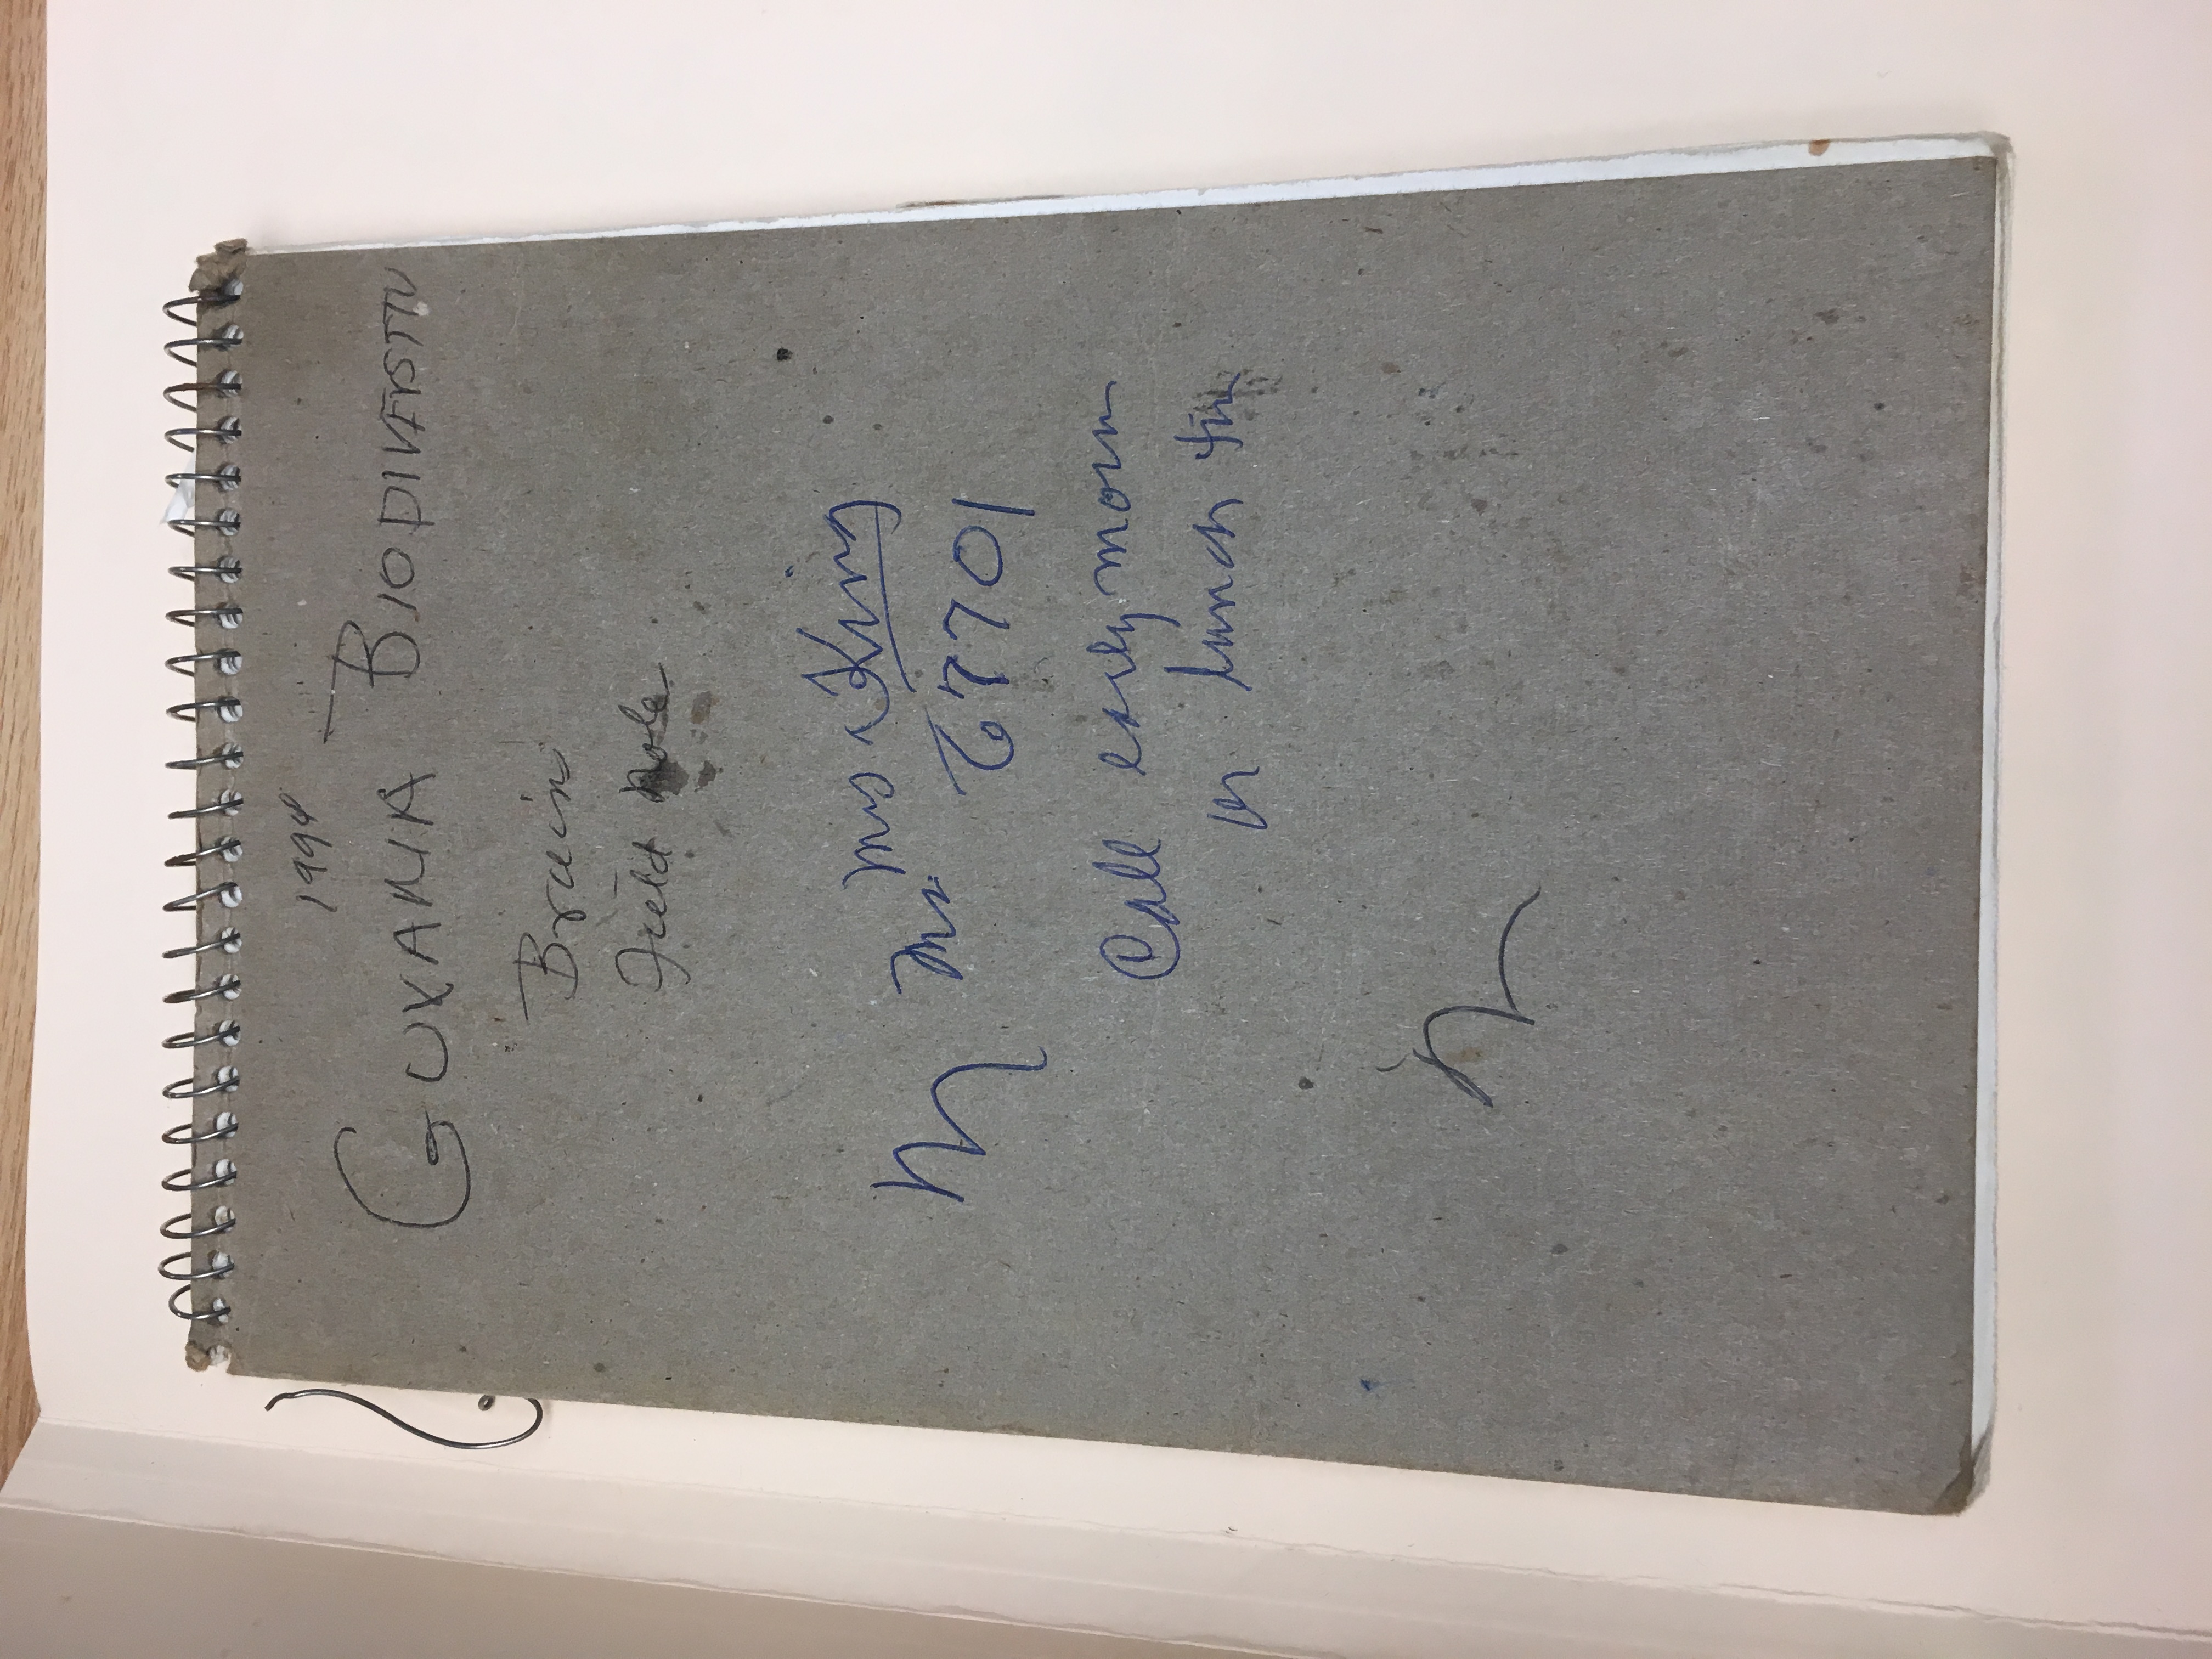 1994
GUYANA BIODIVERSITY
Brain
Field Note
Mrs King
Ms
67701
Call early morn
or lunch tim